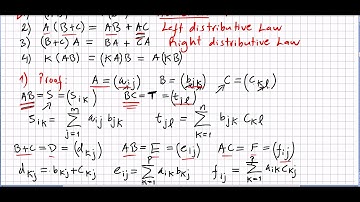 2) A(B+C) = AB + AC Left distributive Law
3) (B+C)A = BA + CA Right distributive Law
4) K(AB) = (KA)B = A(KB)
1) Proof: A = (a_ij) B = (b_jk) C = (c_kl)
AB = S = (s_ik) BC = T = (t_jl)
s_ik = Σ_{j=1}^{m} a_ij b_jk t_jl = Σ_{k=1}^{n} b_jk c_kl
B+C = D = (d_kj) AB = E = (e_ij) AC = F = (f_ij)
d_kj = b_kj + c_kj e_ij = Σ_{k=1}^{p} a_ik b_kj f_ij = Σ_{k=1}^{p} a_ik c_kj